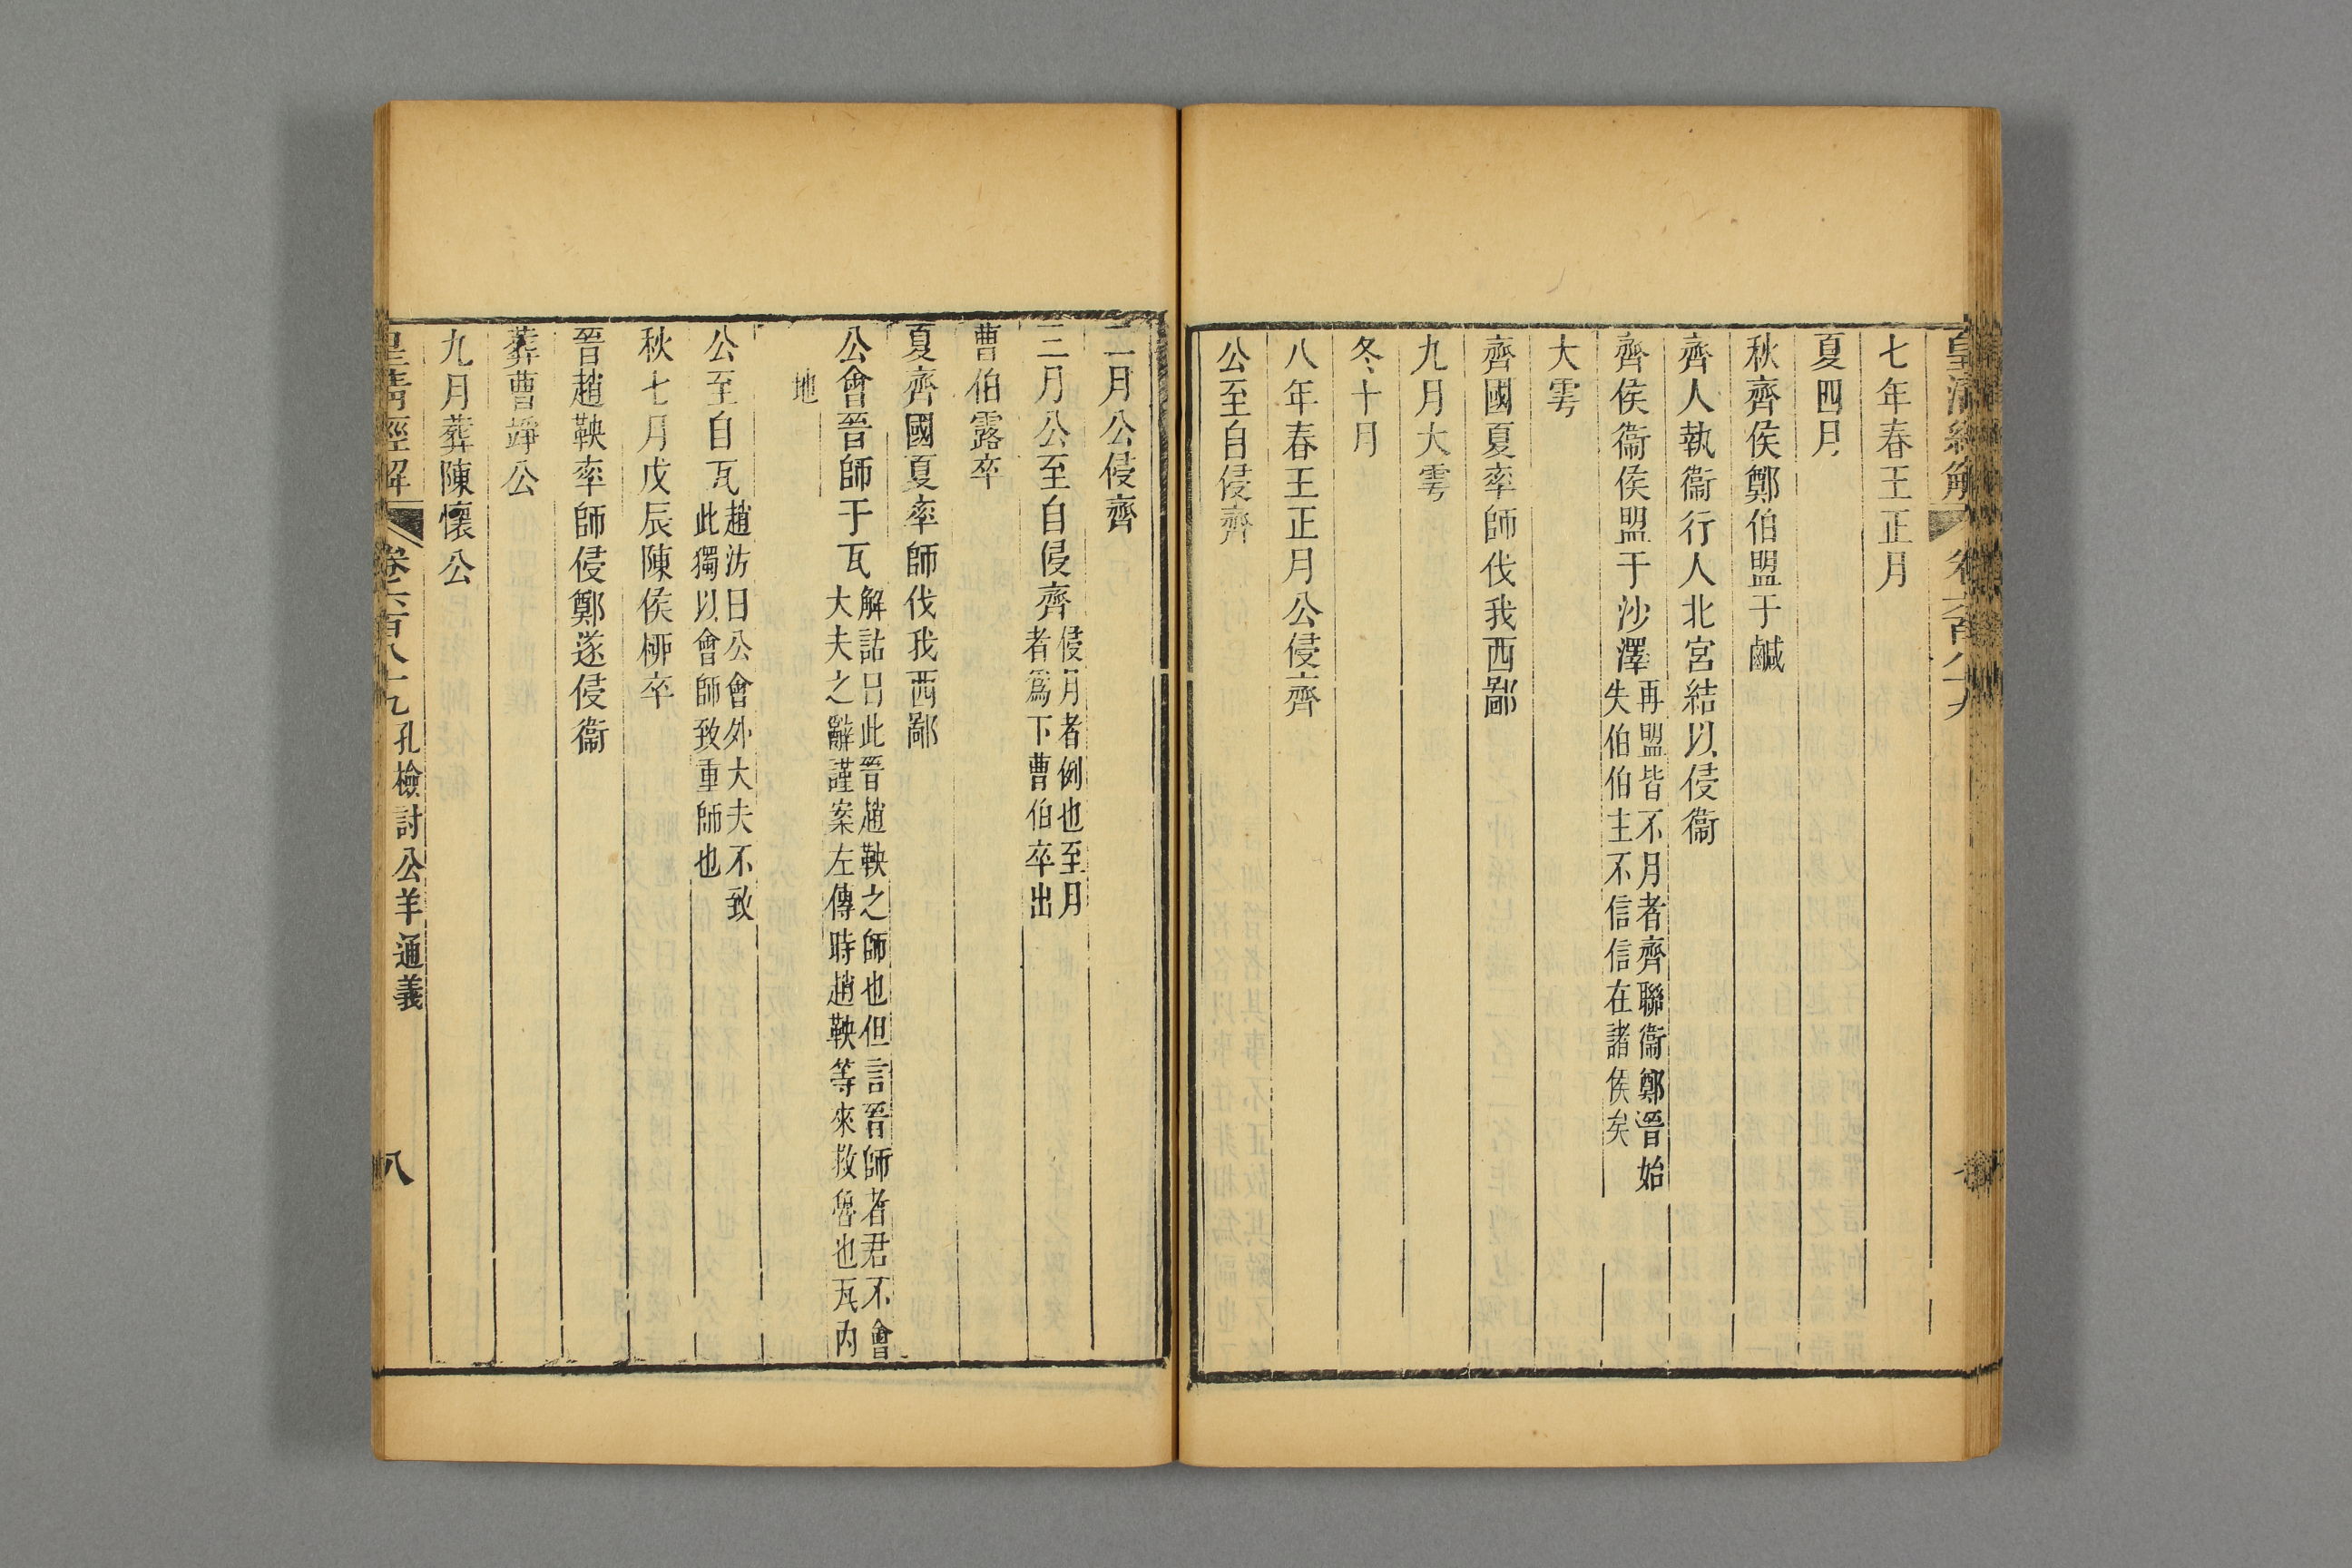 皇清經解 卷六百八十九
七年春王正月
夏四月
秋齊侯鄭伯盟于鹹
齊人執衞行人北宮結以侵衞
齊侯衞侯盟于沙澤再盟皆不月者齊聯衞鄭晉始
失伯伯主不信信在諸侯矣
大雩
齊國夏率師伐我西鄙
九月大雩
冬十月
八年春王正月公侵齊
公至自侵齊
二月公侵齊
三月公至自侵齊侵月者例也至月
者爲下曹伯卒出
曹伯露卒
夏齊國夏率師伐我西鄙
公會晉師于瓦解詁曰此晉趙鞅之師也但言晉師者君不會
大夫之辭謹案左傳時趙鞅等來救魯也瓦內
地
公至自瓦趙汸曰公會外大夫不致
此獨以會師致重師也
秋七月戊辰陳侯柳卒
晉趙鞅率師侵鄭遂侵衞
葬曹竫公
九月葬陳懷公
皇清經解 卷六百八十九 孔檢討公羊通義 八